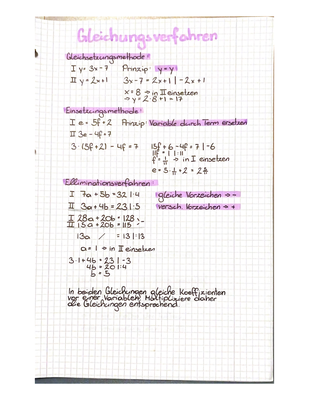 Gleichungsverfahren
Gleichsetzungsmethode:
I y = 3x - 7 Prinzip: y = y
II y = 2x + 1 3x - 7 = 2x + 1 | - 2x + 7
x = 8 → in II einsetzen
→ y = 2 · 8 + 1 = 17
Einsetzungsmethode:
I e = 5f + 2 Prinzip: Variable durch Term ersetzen
II 3e - 4f = 7
3 · (5f + 2) - 4f = 7 15f + 6 - 4f = 7 | - 6
11f = 1 | : 11
f = 1/11 → in I einsetzen
e = 5 · 1/11 + 2 =
Elliminationsverfahren
I 7a + 5b = 32 | · 4 gleiche Vorzeichen → -
II 3a + 4b = 23 | · 5 versch. Vorzeichen → +
I 28a + 20b = 128
II 15a + 20b = 115
13a / = 13 | : 13
a = 1 → in II einsetzen
3 · 1 + 4b = 23 | - 3
4b = 20 | : 4
b = 5
In beiden Gleichungen gleiche Koeffizienten
vor einer Variablen. Multipliziere daher
die Gleichungen entsprechend.